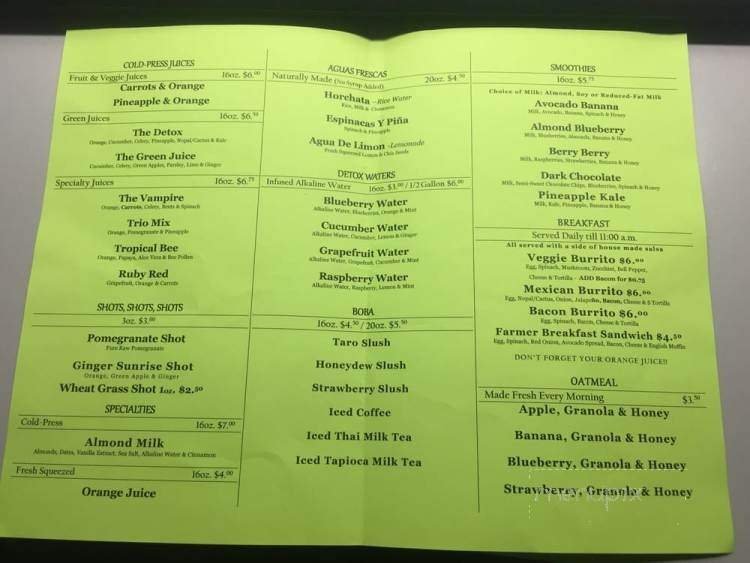 COLD-PRESS JUICES
Fruit & Veggie Juices 16oz. $6.00
Carrots & Orange
Pineapple & Orange
Green Juices 16oz. $6.50
The Detox
Orange, Cucumber, Celery, Pineapple, Nopal/Cactus & Kale
The Green Juice
Cucumber, Celery, Green Apples, Parsley, Lime & Ginger
Specialty Juices 16oz. $6.75
The Vampire
Orange, Carrots, Celery, Beets & Spinach
Trio Mix
Orange, Pomegranate & Pineapple
Tropical Bee
Orange, Papaya, Aloe Vera & Bee Pollen
Ruby Red
Grapefruit, Orange & Carrots
SHOTS, SHOTS, SHOTS
3oz. $3.00
Pomegranate Shot
Pure Raw Pomegranate
Ginger Sunrise Shot
Orange, Green Apple & Ginger
Wheat Grass Shot 1oz. $2.50
SPECIALTIES
Cold-Press 16oz. $7.00
Almond Milk
Almonds, Dates, Vanilla Extract, Sea Salt, Alkaline Water & Cinnamon
Fresh Squeezed 16oz. $4.00
Orange Juice
AGUAS FRESCAS
Naturally Made (No Syrup Added) 20oz. $4.50
Horchata –Rice Water
Rice, Milk & Cinnamon
Espinacas Y Piña
Spinach & Pineapple
Agua De Limon -Lemonade
Fresh Squeezed Lemon & Chia Seeds
DETOX WATERS
Infused Alkaline Water 16oz. $3.00 / 1/2 Gallon $6.00
Blueberry Water
Alkaline Water, Blueberries, Orange & Mint
Cucumber Water
Alkaline Water, Cucumber, Lemon & Ginger
Grapefruit Water
Alkaline Water, Grapefruit, Cucumber & Mint
Raspberry Water
Alkaline Water, Raspberry, Lemon & Mint
BOBA
16oz. $4.50 / 20oz. $5.50
Taro Slush
Honeydew Slush
Strawberry Slush
Iced Coffee
Iced Thai Milk Tea
Iced Tapioca Milk Tea
SMOOTHIES
16oz. $5.75
Choice of Milk: Almond, Soy or Reduced-Fat Milk
Avocado Banana
Milk, Avocado, Banana, Spinach & Honey
Almond Blueberry
Milk, Blueberries, Almonds, Banana & Honey
Berry Berry
Milk, Raspberries, Strawberries, Banana & Honey
Dark Chocolate
Milk, Semi-Sweet Chocolate Chips, Blueberries, Spinach & Honey
Pineapple Kale
Milk, Kale, Pineapple, Banana & Honey
BREAKFAST
Served Daily till 11:00 a.m.
All served with a side of house made salsa
Veggie Burrito $6.00
Egg, Spinach, Mushroom, Zucchini, Bell Pepper,
Cheese & Tortilla - ADD Bacon for $0.75
Mexican Burrito $6.00
Egg, Nopal/Cactus, Onion, Jalapeño, Bacon, Cheese & Tortilla
Bacon Burrito $6.00
Egg, Spinach, Bacon, Cheese & Tortilla
Farmer Breakfast Sandwich $4.50
Egg, Spinach, Red Onion, Avocado Spread, Bacon, Cheese & English Muffin
DON'T FORGET YOUR ORANGE JUICE!!
OATMEAL
Made Fresh Every Morning $3.50
Apple, Granola & Honey
Banana, Granola & Honey
Blueberry, Granola & Honey
Strawberry, Granola & Honey
menupix